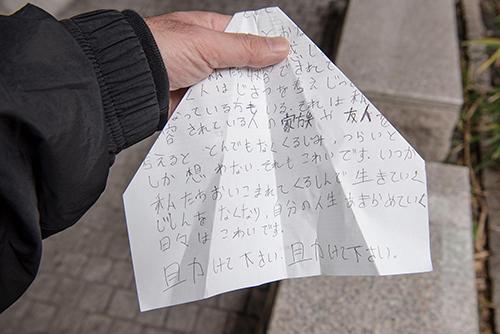 して
私 できれ
くんは じさつを考えじっ
なっている方もいる。それは私
容されている人の家族や友人を
考えると とんでもなくくるしみ つらいと
しか想わない。それもこわいです。いつか
私たちおいこまれてくるしんで生きていく
じしんをなくなり、自分の人生あきらめていく
日々は こわいです。
且力けて下さい。且力けて下さい。